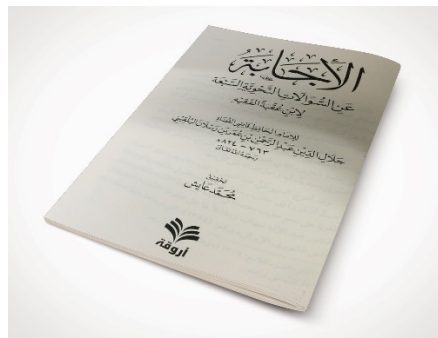 الإجابة
عن السؤالات النحوية السبعة
لابن عقبة الفقيه
للإمام الحافظ قاضي القضاة
جلال الدين عبد الرحمن بن عمر بن رسلان البلقيني
٧٦٣ - ٨٢٤ هـ
رحمه الله تعالى
تحقيق
محمد عايش
أروقة